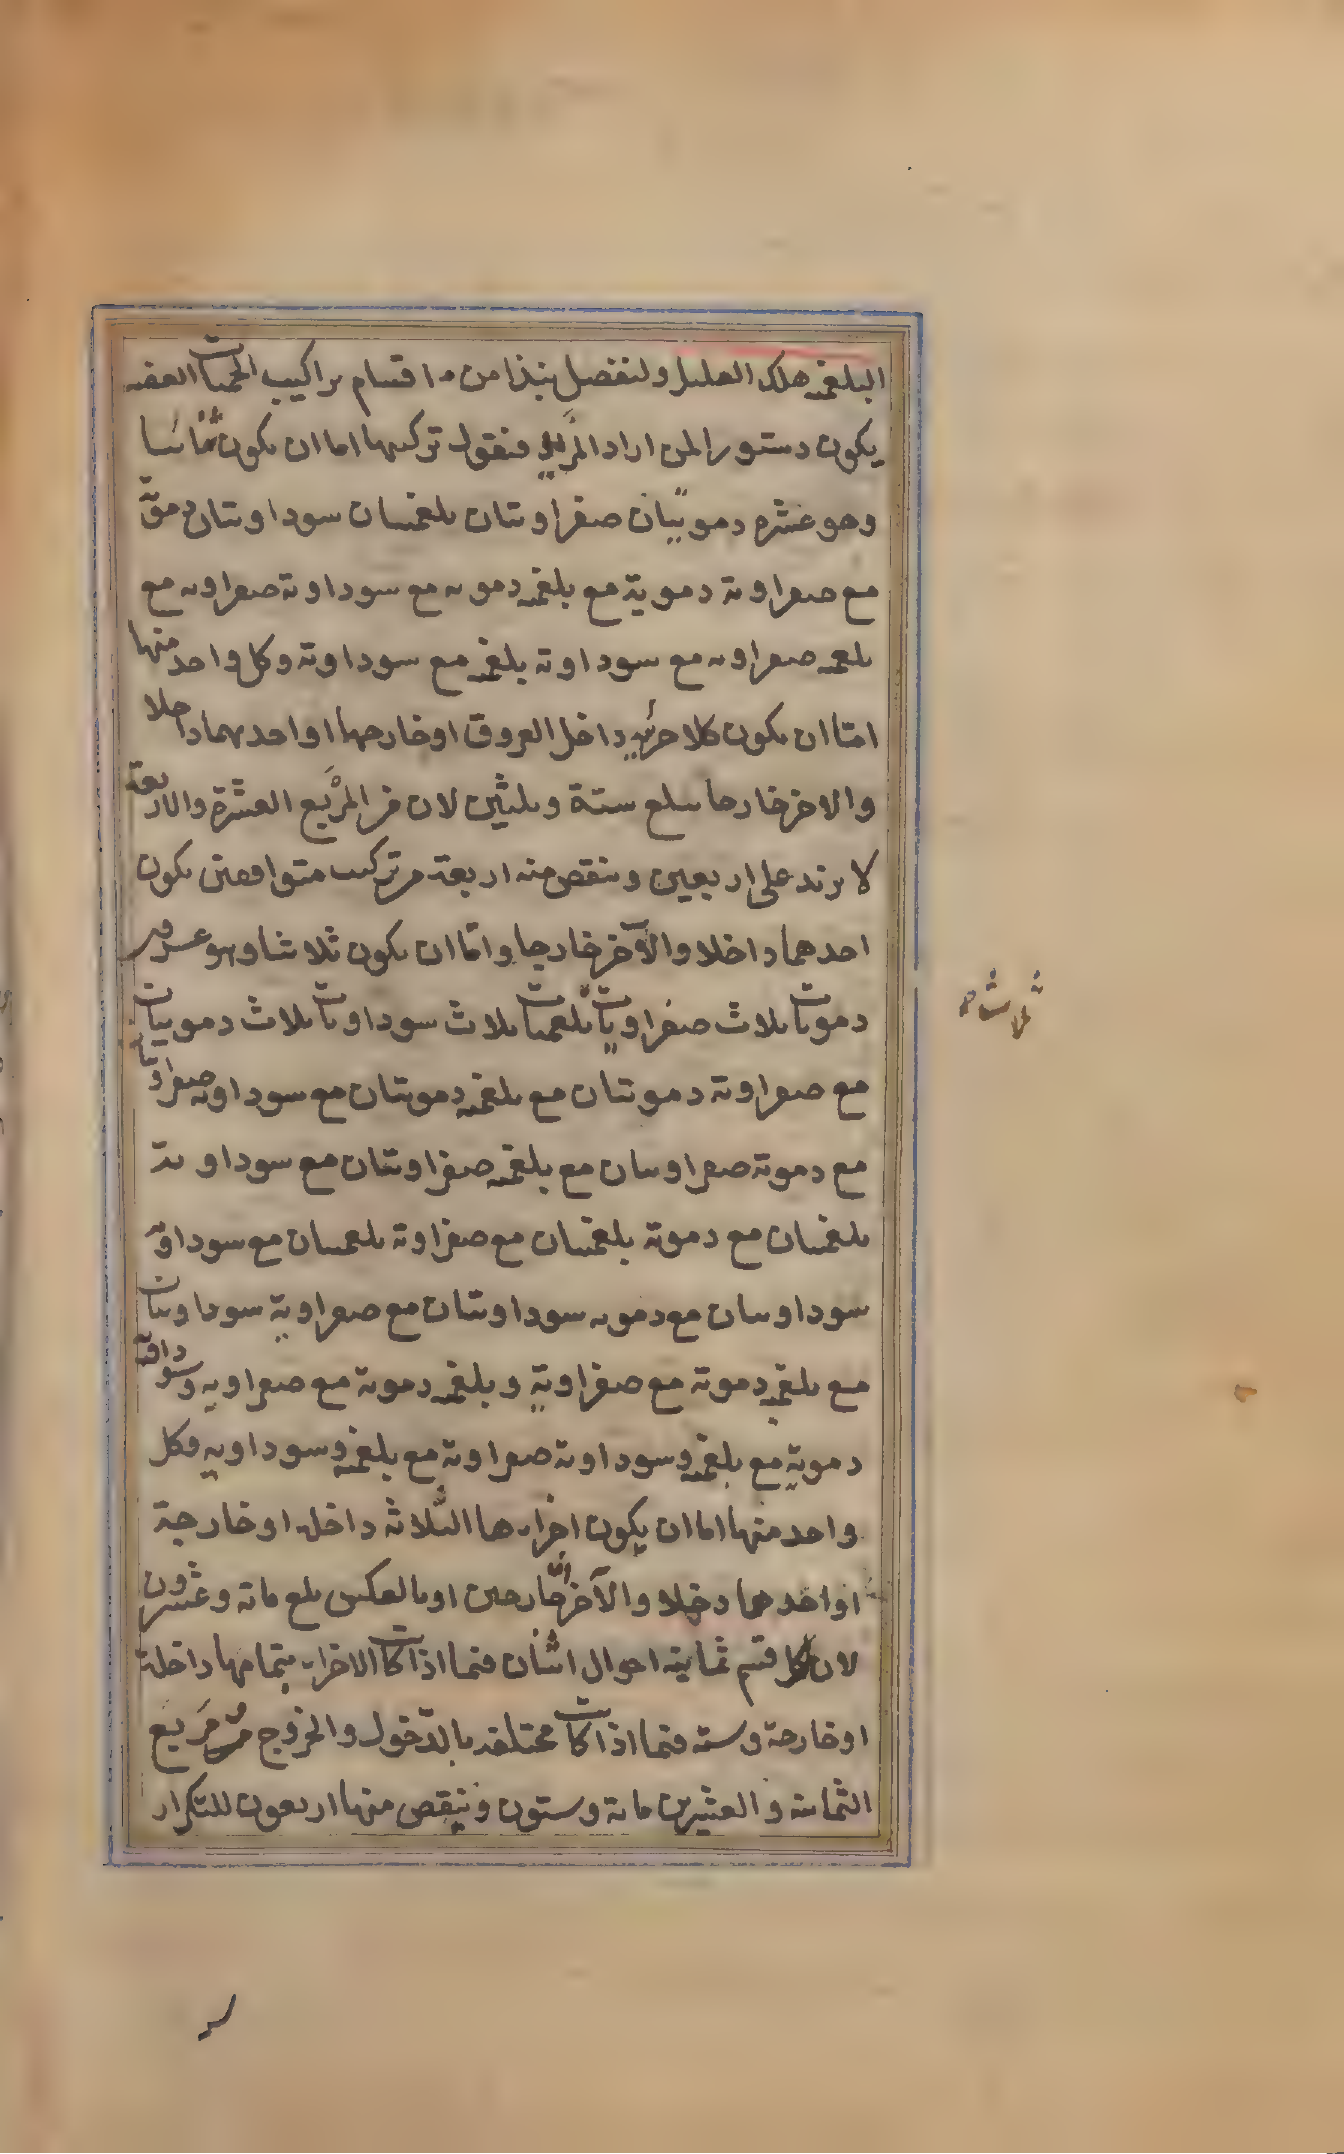 البلغمية هلك العليل ولنفصل نبذا من اقسام تراكيب الحميات العفنة
يكون دستورا لمن اراد المزيد فنقول تركيبها اما ان يكون ثنائيا
وهو عشرة دمويتان صفراويتان بلغميتان سوداويتان دموية
مع صفراوية دموية مع بلغمية دموية مع سوداوية صفراوية مع
بلغمية صفراوية مع سوداوية بلغمية مع سوداوية وكل واحد منها
امّا ان يكون كلا جزئيه داخل العروق او خارجها او احدهما داخلا
والاخر خارجا يبلغ ستة وثلثين لان مربع العشرة والاربعة
لا يزيد على اربعين وينقص منه اربعة من تركيب متوافقين يكون
احدهما داخلا والآخر خارجا وامّا ان يكون ثلاثيا وهو عشرون
دمويات ثلاث صفراويات بلغميات ثلاث سوداويات ثلاث دمويتان
مع صفراوية دمويتان مع بلغمية دمويتان مع سوداوية صفراويتان
مع دموية صفراويتان مع بلغمية صفراويتان مع سوداوية
بلغميتان مع دموية بلغميتان مع صفراوية بلغميتان مع سوداوية
سوداويتان مع دموية سوداويتان مع صفراوية سوداويتان
مع بلغمية دموية مع صفراوية وبلغمية دموية مع صفراوية وسوداوية
دموية مع بلغمية وسوداوية صفراوية مع بلغمية وسوداوية فكل
واحد منها اما ان يكون اجزاءها الثلاثة داخلة او خارجة
او احدهما دخلا والآخران خارجين او بالعكس يبلغ مائة وعشرون
لان لكل قسم ثمانية احوال اثنان فيما اذا كانت الاجزاء بتمامها داخلة
او خارجة وستة فيما اذا كانت مختلفة بالدّخول والخروج مربع
الثمانية والعشرين مائة وستون وينقص منها اربعون للتكرار
ثلاث